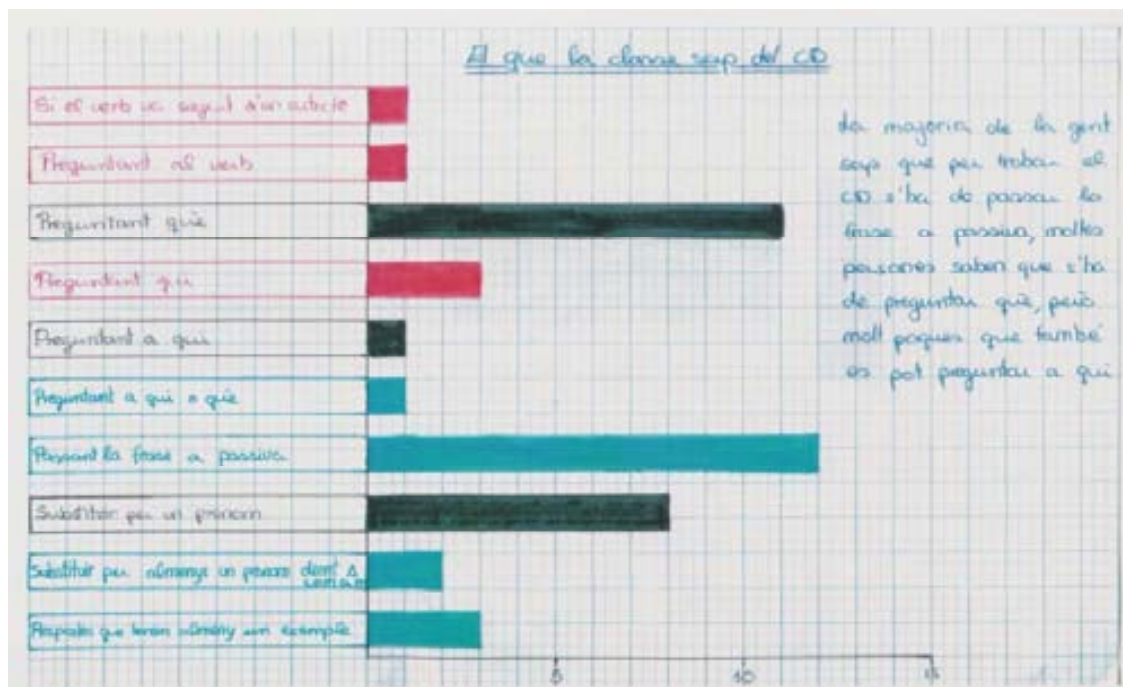 El que la classe sap del CD
Si el verb va seguit d'un article
Preguntant al verb
Preguntant què
Preguntant qui
Preguntant a qui
Preguntant a qui o què
Passant la frase a passiva
Substituir per un pronom
Substituir per almenys un pronom
Respostes que tenen almeny un exemple
5
10
15
La majoria de la gent
sap que per trobar el
CD s'ha de passar la
frase a passiva, moltes
persones saben que s'ha
de preguntar què, però
molt poques que també
es pot preguntar a qui